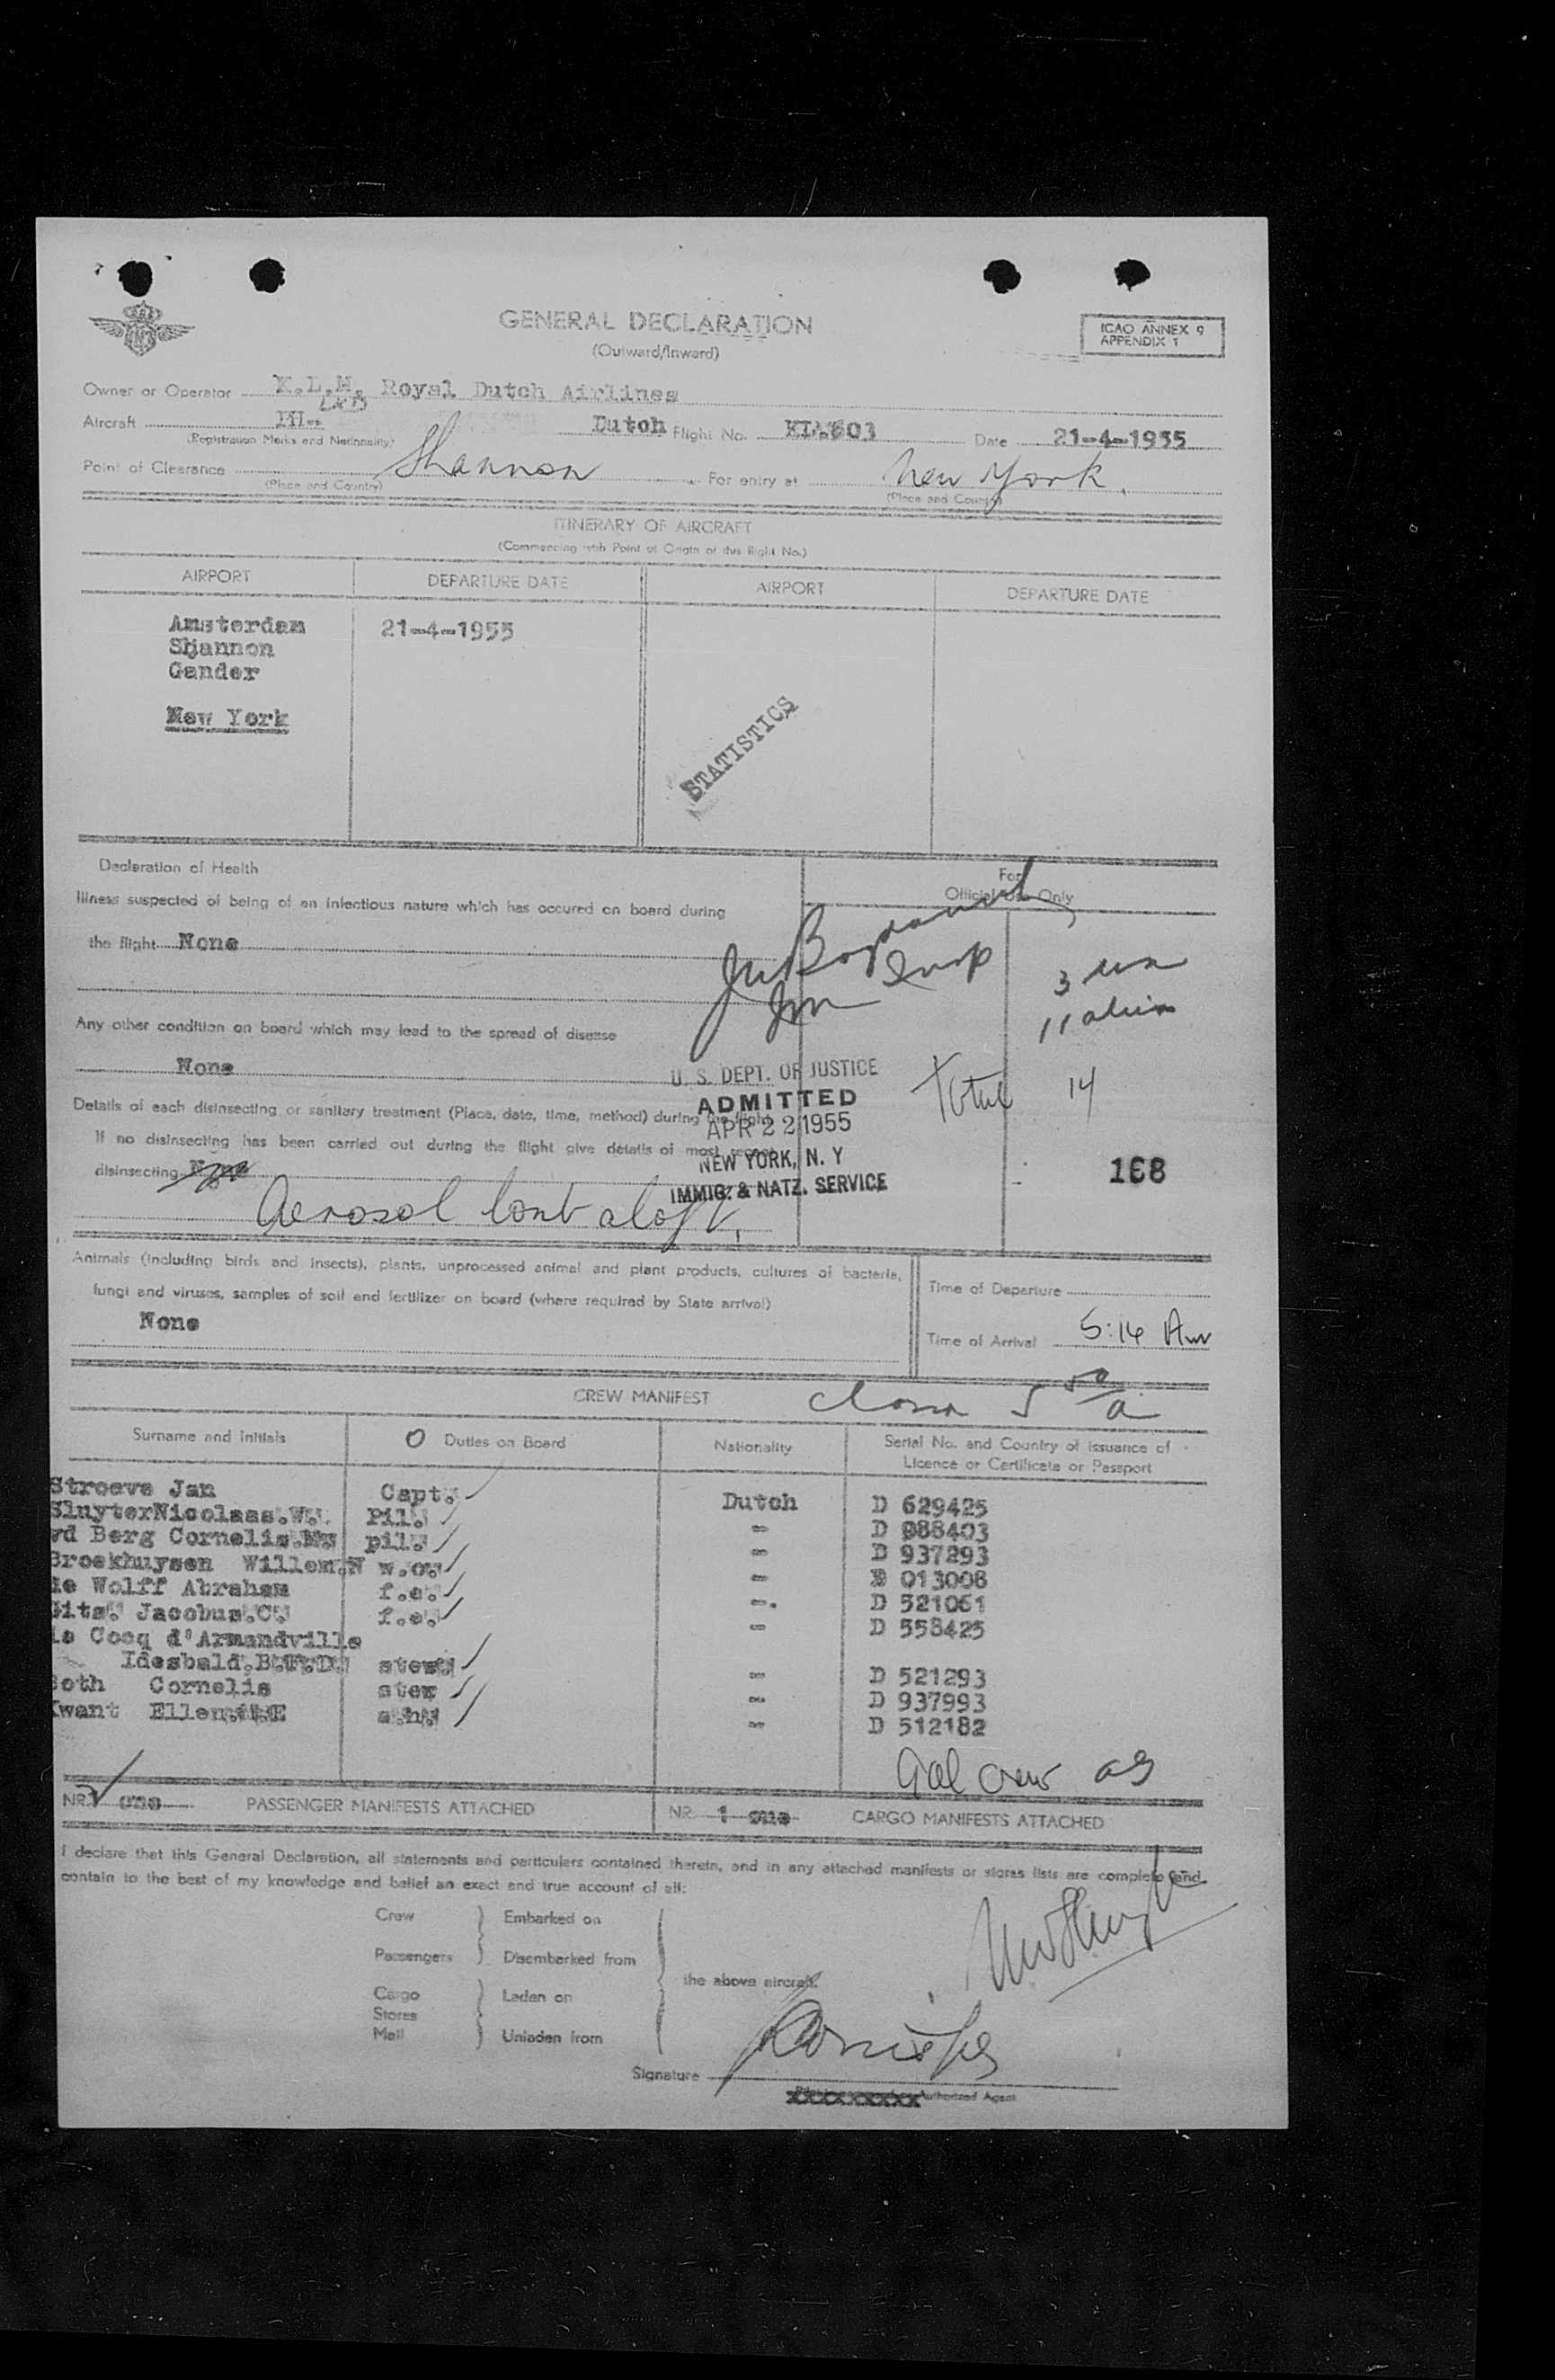 GENERAL DECLARATION
(Outward/Inward)
ICAO ANNEX 9
APPENDIX 1
Owner or Operator K.L.M. Royal Dutch Airlines
Aircraft PH-- Dutch Flight No. KL.603 Date 21-4-1955
(Registration Marks and Nationality)
Point of Clearance Shannon For entry at New York.
(Place and Country) (Place and Country)
ITINERARY OF AIRCRAFT
(Commencing with Point of Origin of this flight No.)
AIRPORT DEPARTURE DATE AIRPORT DEPARTURE DATE
Amsterdam 21-4-1955
Shannon
Gander
New York
STATISTICS
Declaration of Health
For
Official Use Only
Illness suspected of being of an infectious nature which has occured on board during
the flight None
3
11
Any other condition on board which may lead to the spread of disease
None
Total 14
U. S. DEPT. OF JUSTICE
ADMITTED
APR 22 1955
NEW YORK, N. Y
IMMIG. & NATZ. SERVICE
Details of each disinsecting or sanitary treatment (Place, date, time, method) during the flight
If no disinsecting has been carried out during the flight give details of most recent
disinsecting None
168
Aerosol bomb aloft.
Animals (including birds and insects), plants, unprocessed animal and plant products, cultures of bacteria,
fungi and viruses, samples of soil and fertilizer on board (where required by State arrival)
None
Time of Departure
Time of Arrival 5:14 Am
CREW MANIFEST
Surname and Initials Duties on Board Nationality Serial No. and Country of Issuance of
Licence or Certificate or Passport
Stroeve Jan Capt. Dutch D 629425
SluyterNicolaas.W. Pil. " D 988403
vd Berg Cornelis.M. pil. " D 937293
Broekhuysen Willem.N w.o. " D 013008
de Wolff Abraham f.e. " D 521061
Sits. Jacobus.C. f.e. " D 558425
le Cocq d'Armandville
Idesbald.B.F.D. stew. " D 521293
Both Cornelis stew " D 937993
Kwant Ellen. E s.h. " D 512182
NR. 1 one PASSENGER MANIFESTS ATTACHED NR. 1 one CARGO MANIFESTS ATTACHED
I declare that this General Declaration, all statements and particulars contained therein, and in any attached manifests or stores lists are complete and
contain to the best of my knowledge and belief an exact and true account of all:
Crew Embarked on
Passengers Disembarked from
the above aircraft.
Cargo Laden on
Stores
Mail Unladen from
Signature
Authorized Agent